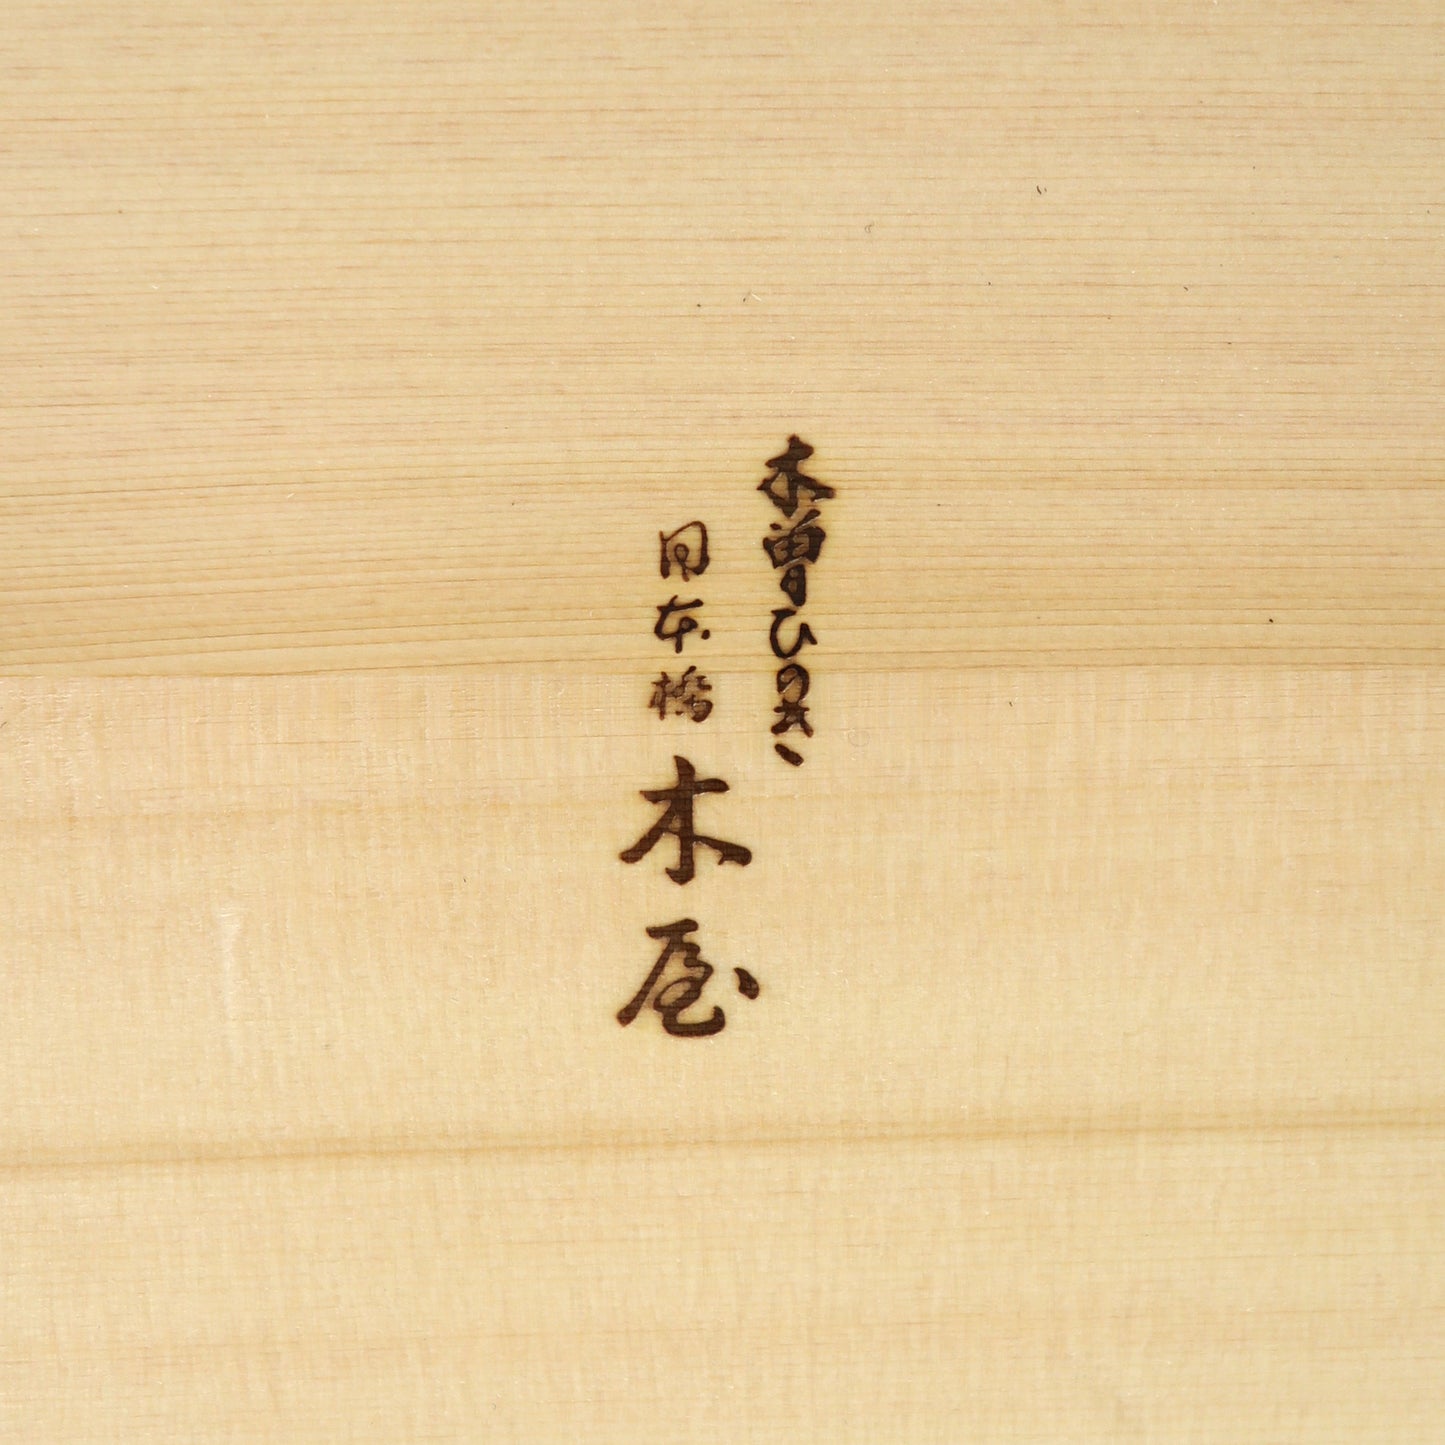 木曽ひのき
日本橋
木屋